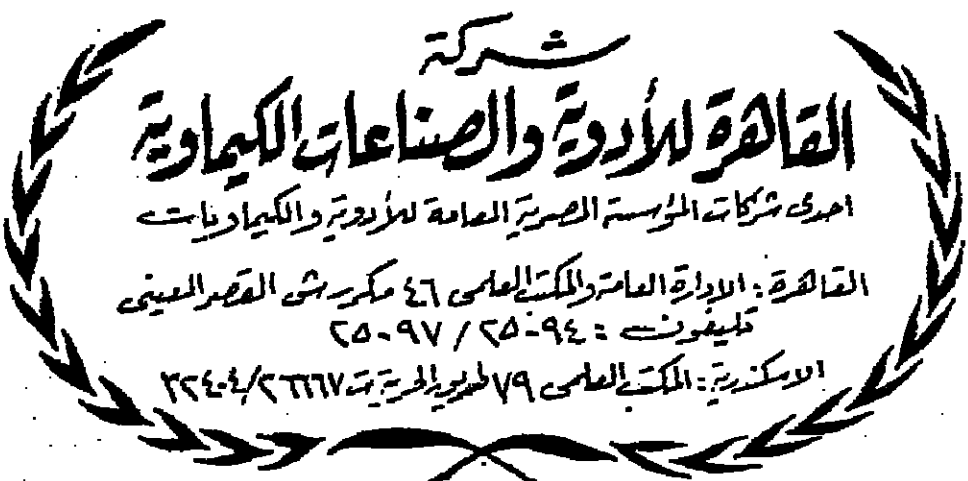 شركة
القاهرة للأدوية والصناعات الكيماوية
احدى شركات المؤسسة المصرية العامة للأدوية والكيماويات
القاهرة : الادارة العامة والمكتب العلمى ٤٦ مكرر ش القصر العينى
تليفون : ٢٥٠٩٤ / ٢٥٠٩٧
الاسكندرية : المكتب العلمى ٧٩ طريق الحرية ت ٢٦٦٦٧/٣٢٤٠٤